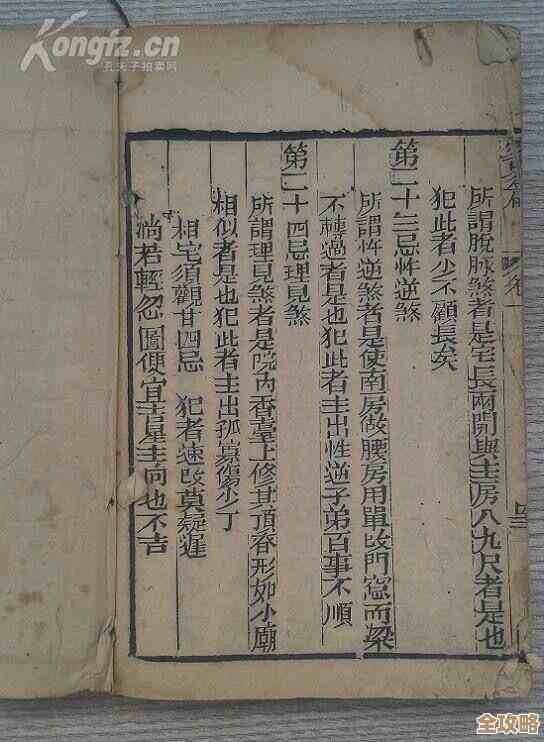 Kongfz.cn
孔夫子拍卖网
所謂脫脉煞者是宅長兩間與主房八九尺者是也
犯此者少不顧長矣
第二十三忌忤逆煞
所謂忤逆煞者是使南房做腰房用單改門窓而梁
不轉過者是也犯此者主出性逆子弟百事不順
第二十四忌理見煞
所謂理見煞者是院內香臺上修其頂脊形如小廟
相似者是也犯此者主出孤寡傷少丁
相宅須觀廿四忌 犯者速改莫疑遲
淌若輕忽圖便宜吉星主向也不吉
全攻略